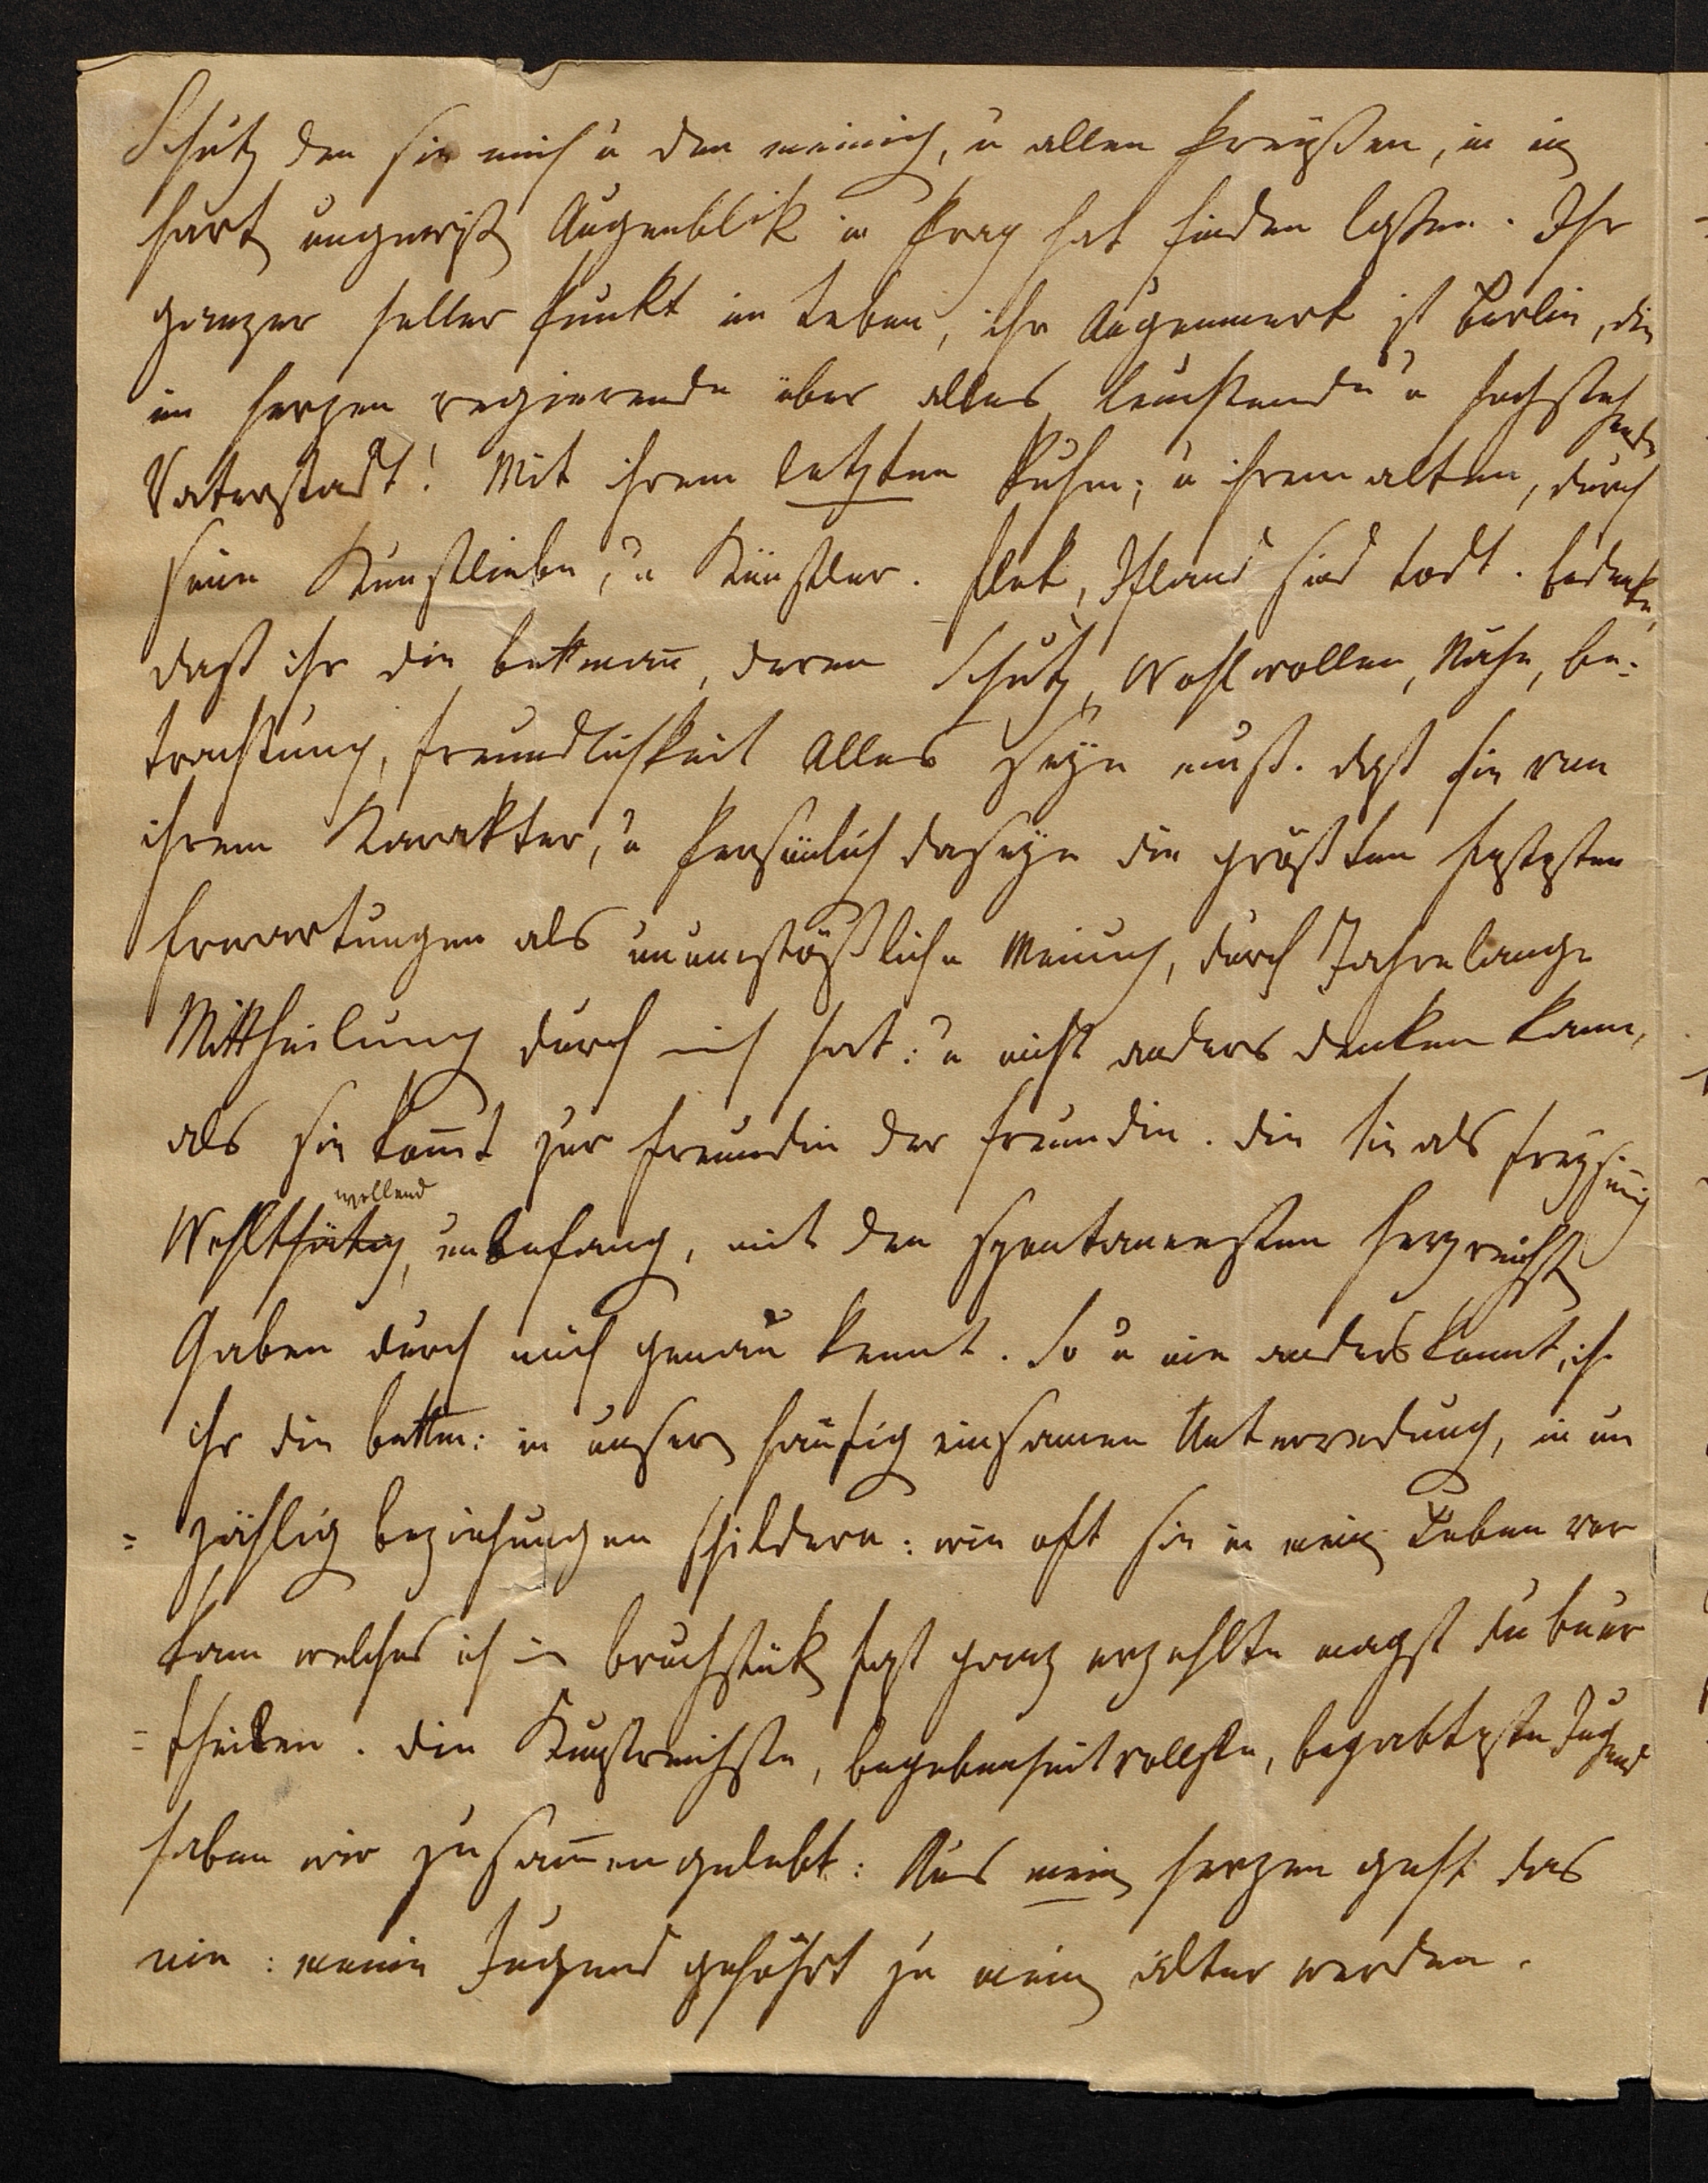 Schutz den sie mich u den meinich, u allen Preußen, in ing
hart ungewiß Augenblik in Prag hat finden laßen. Ihr
ganzer heller Punkt im Leben, ihr Augenmerk ist Berlin, die
im Herzen regierende über alles leuchtende u hochstehende
Vaterstadt! Mit ihrem letzten Ruhm; u ihrem alten, durch
seine Kunstliebe, u Künstler. Flek, Ifland sind todt. Bedenke,
daß ihr die Bettmañ, deren Schutz, Wohlwollen, Nähe, Be-
trachtung, Freundlichkeit Alles seyn muß. daß sie von
ihrem Karakter, u Persönlich daseyn die größten festesten
Erwartungen als unumstößliche Meinung, durch Jahrelange
Mittheilung durch mich hat: u nicht anders denken kann,
als sie kom̄t zur Freundin der Freundin. die Sie als freysinnig
wollend
Wohlthätig, unbefang, mit den spontanensten herzreichst
Gaben durch mich genau kennt. So u nie anders konnt, ich
ihr die Bettm: in unsern häufig einsamen Unterredung, in un
= zählig Beziehungen schildern: wie oft sie in mein Leben vor
kam welches ich in Bruchstük fast ganz erzehlte magst du beur
= theilen. die Kunstreichste, begebenheitvollste, begabteste Jugend
haben wir zusam̄engelebt: Aus mein Herzen geht das
nie: meine Jugend gehört zu mein älter werden.